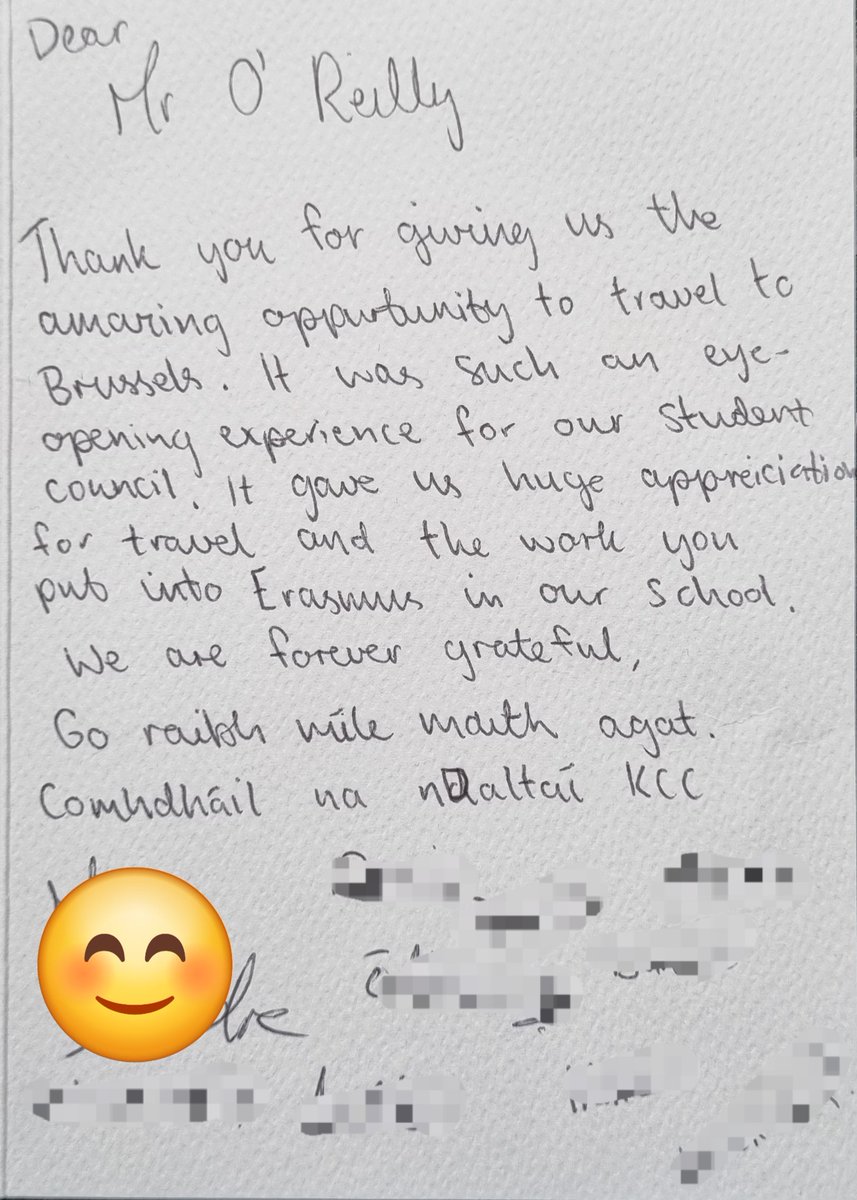 Dear
Mr O'Reilly
Thank you for giving us the
amazing oppurtunity to travel to
Brussels. It was such an eye-
opening experience for our student
council. It gave us huge appreiciation
for travel and the work you
put into Erasmus in our school.
We are forever grateful,
Go raibh míle maith agat.
Comhdháil na nDaltaí KCC